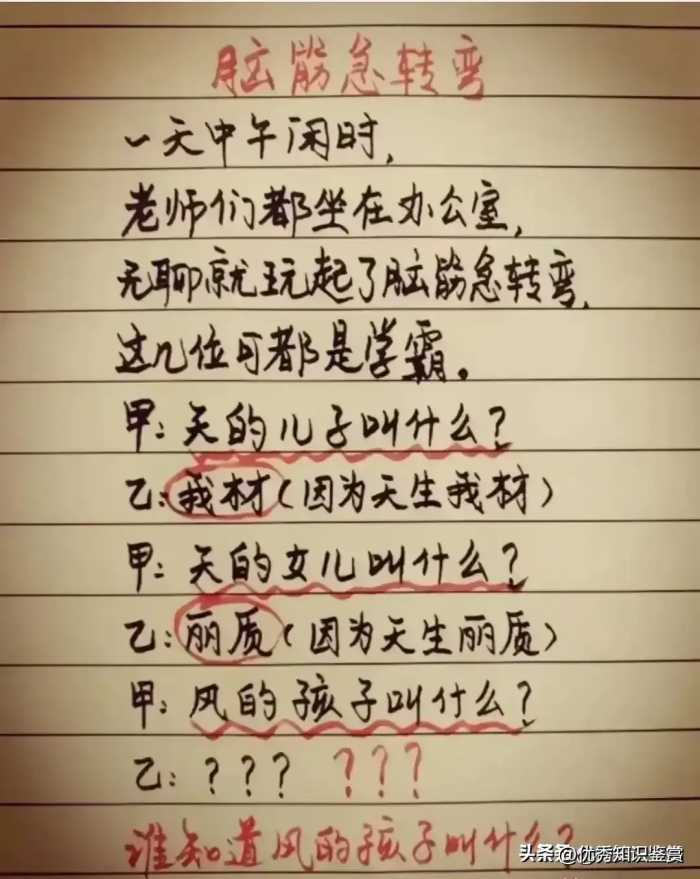 脑筋急转弯
一天中午闲时,
老师们都坐在办公室,
无聊就玩起了脑筋急转弯,
这几位可都是学霸。
甲:天的儿子叫什么?
乙:我材(因为天生我材)
甲:天的女儿叫什么?
乙:丽质(因为天生丽质)
甲:风的孩子叫什么?
乙:??? ???
谁知道风的孩子叫什么?
头条 @优秀知识鉴赏